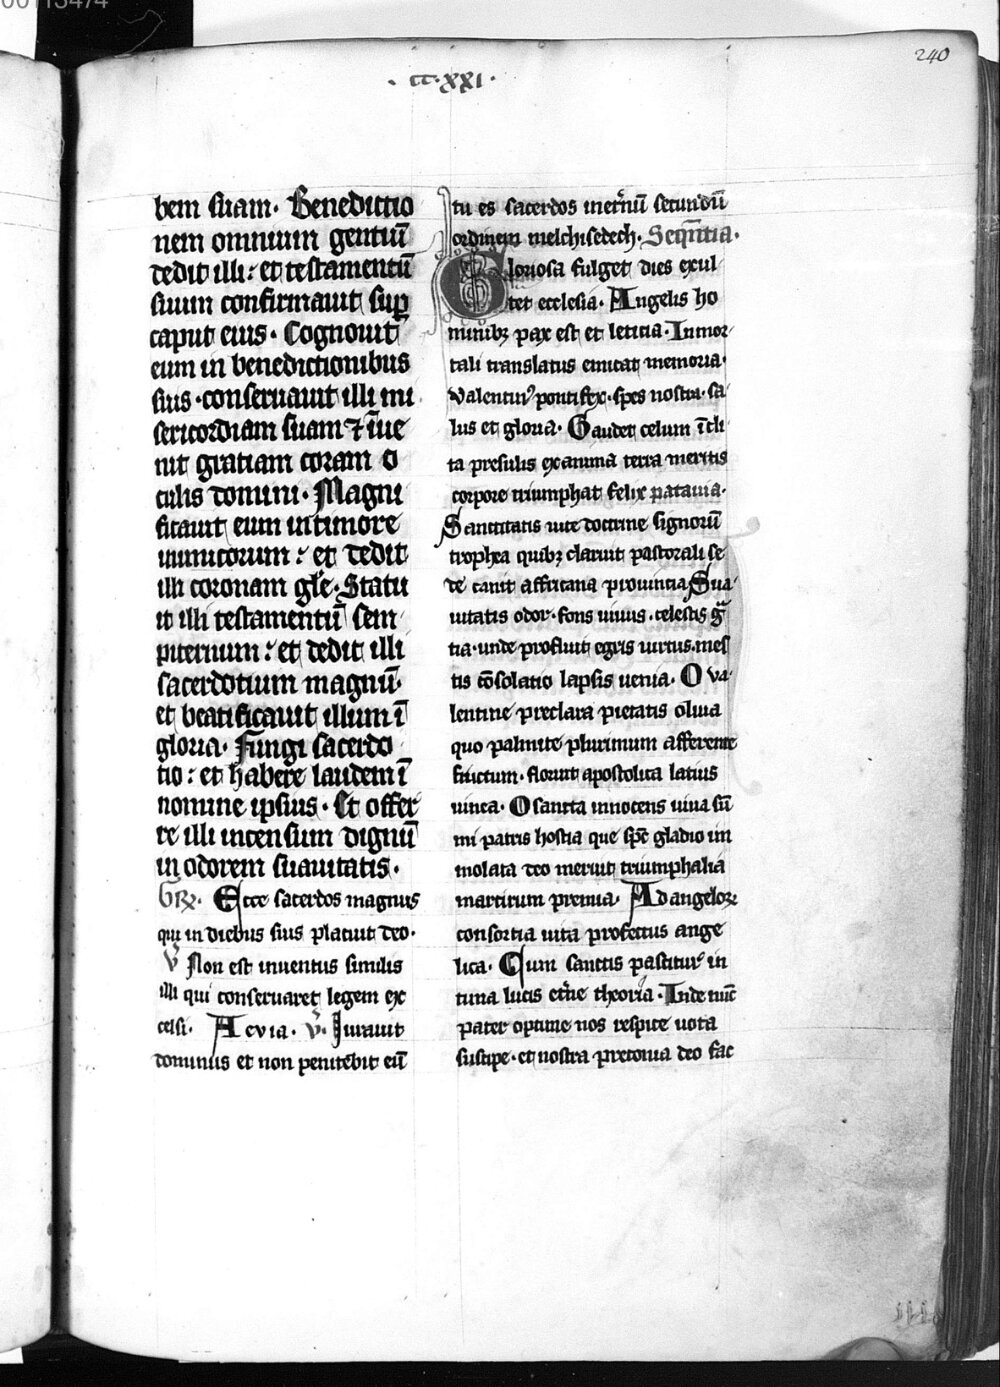 00113474
240
· cc·xxi·
bem suam· Benedictio
nem omnium gentiū
dedit illi: et testamentū
suum confirmauit sup̄
caput eius· Cognouit
eum in benedictionibus
suis· conseruauit illi mi
sericordiam suam ⁊ īue
nit gratiam coram o
culis domini· Magni
ficauit eum in timore
inimicorum: et dedit
illi coronam gl̄e· Statu
it illi testamentū sem
piternum: et dedit illi
sacerdotium magnū·
et beatificauit illum ī
gloria· Fungi sacerdo
tio: et habere laudem ī
nomine ipsius· Et offer
re illi incensum dignū
in odorem suauitatis·
Ecce sacerdos magnus
qui in diebus suis placuit deo·
v̄ Non est inuentus similis
illi qui conseruaret legem ex
celsi· Aevia· v̄· Iurauit
dominus et non penitebit eū
tu es sacerdos ineternū secundū
ordinem melchisedech· Sequentia·
Gloriosa fulget dies exul
tet ecclesia· Angelis ho
minibꝫ pax est et leticia· Inmor
tali translatus emicat memoria·
Valentinꝰ pontifex· spes nostra· sa
lus et gloria· Gaudet celum īcli
ta presulis exanima terra meritis
corpore triumphat felix patauia·
Sanctitatis uite doctrine signorū
trophea quibꝫ claruit pastorali se
de canit affricana prouincia Sua
uitatis odor· fons uiuus· celestis gr̄a
tia· unde profluit egris uirtus· mes
tis cōsolatio lapsis uenia· O va
lentine preclara pietatis oliua
quo palmite plurimum afferente
fructum· floruit apostolica latius
uinea· O sancta innocens uiua sū
mi patris hostia que spē gladio im
molata deo meruit triumphalia
martirum premia· Ad angeloꝝ
consortia uita profectus ange
lica· Cum sanctis pascitur in
tima lucis etn̄e theoria· Inde nūc
pater optime nos respice uota
suscipe· et nostra preconia deo fac